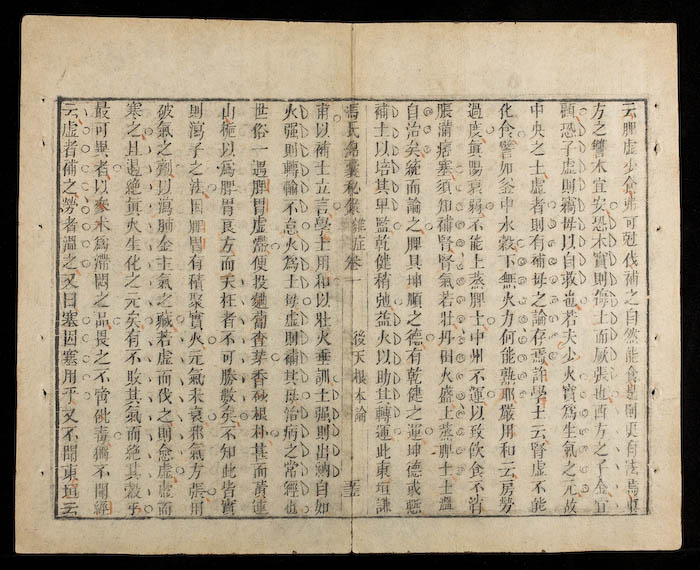 云脾虛少食弗可尅伐補之自然能食是則更有法焉東
方之讐木宜安恐木實則侮土而厥張也西方之子金宜
顧恐子虛則竊母以自救也若夫少火實爲生氣之元故
中央之土虛者則有補母之論存焉許學士云腎虛不能
化食譬如釜中水穀下無火力何能熟耶嚴用和云房勞
過度眞陽衰弱不能上蒸脾土中州不運以致飲食不消
脹滿痞塞須知補腎腎氣若壯丹田火盛上蒸脾土土溫
自治矣統而論之脾具坤順之德有乾健之運坤德或慙
補土以培其卑監乾健稍弛益火以助其轉運此東垣謙
馮氏錦囊秘錄雜症卷一 後天根本論
甫以補土立言學士用和以壯火垂訓土强則出納自如
火强則轉輸不怠火爲土母虛則補其母治病之常經也
世俗一遇脾胃虛滯便投麯葡香芽香砂根朴甚而黃連
山梔以爲脾胃良方而夭枉者不可勝數矣不知此皆實
則瀉子之法因脾胃有積聚實火元氣未衰邪氣方張用
破氣之劑以瀉肺金主氣之臟若虛而伐之則愈虛虛而
寒之且遏絕眞火生化之元矣有不敗其氣而絕其穀乎
最可異者以參朮爲滯悶之品畏之不啻鴆毒獨不聞經
云虛者補之勞者溫之又曰塞因塞用乎又不聞東垣云